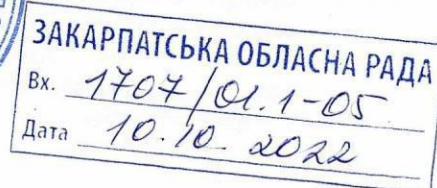 ЗАКАРПАТСЬКА ОБЛАСНА РАДА
Вх. 1707/01.1-05
Дата 10.10.2022